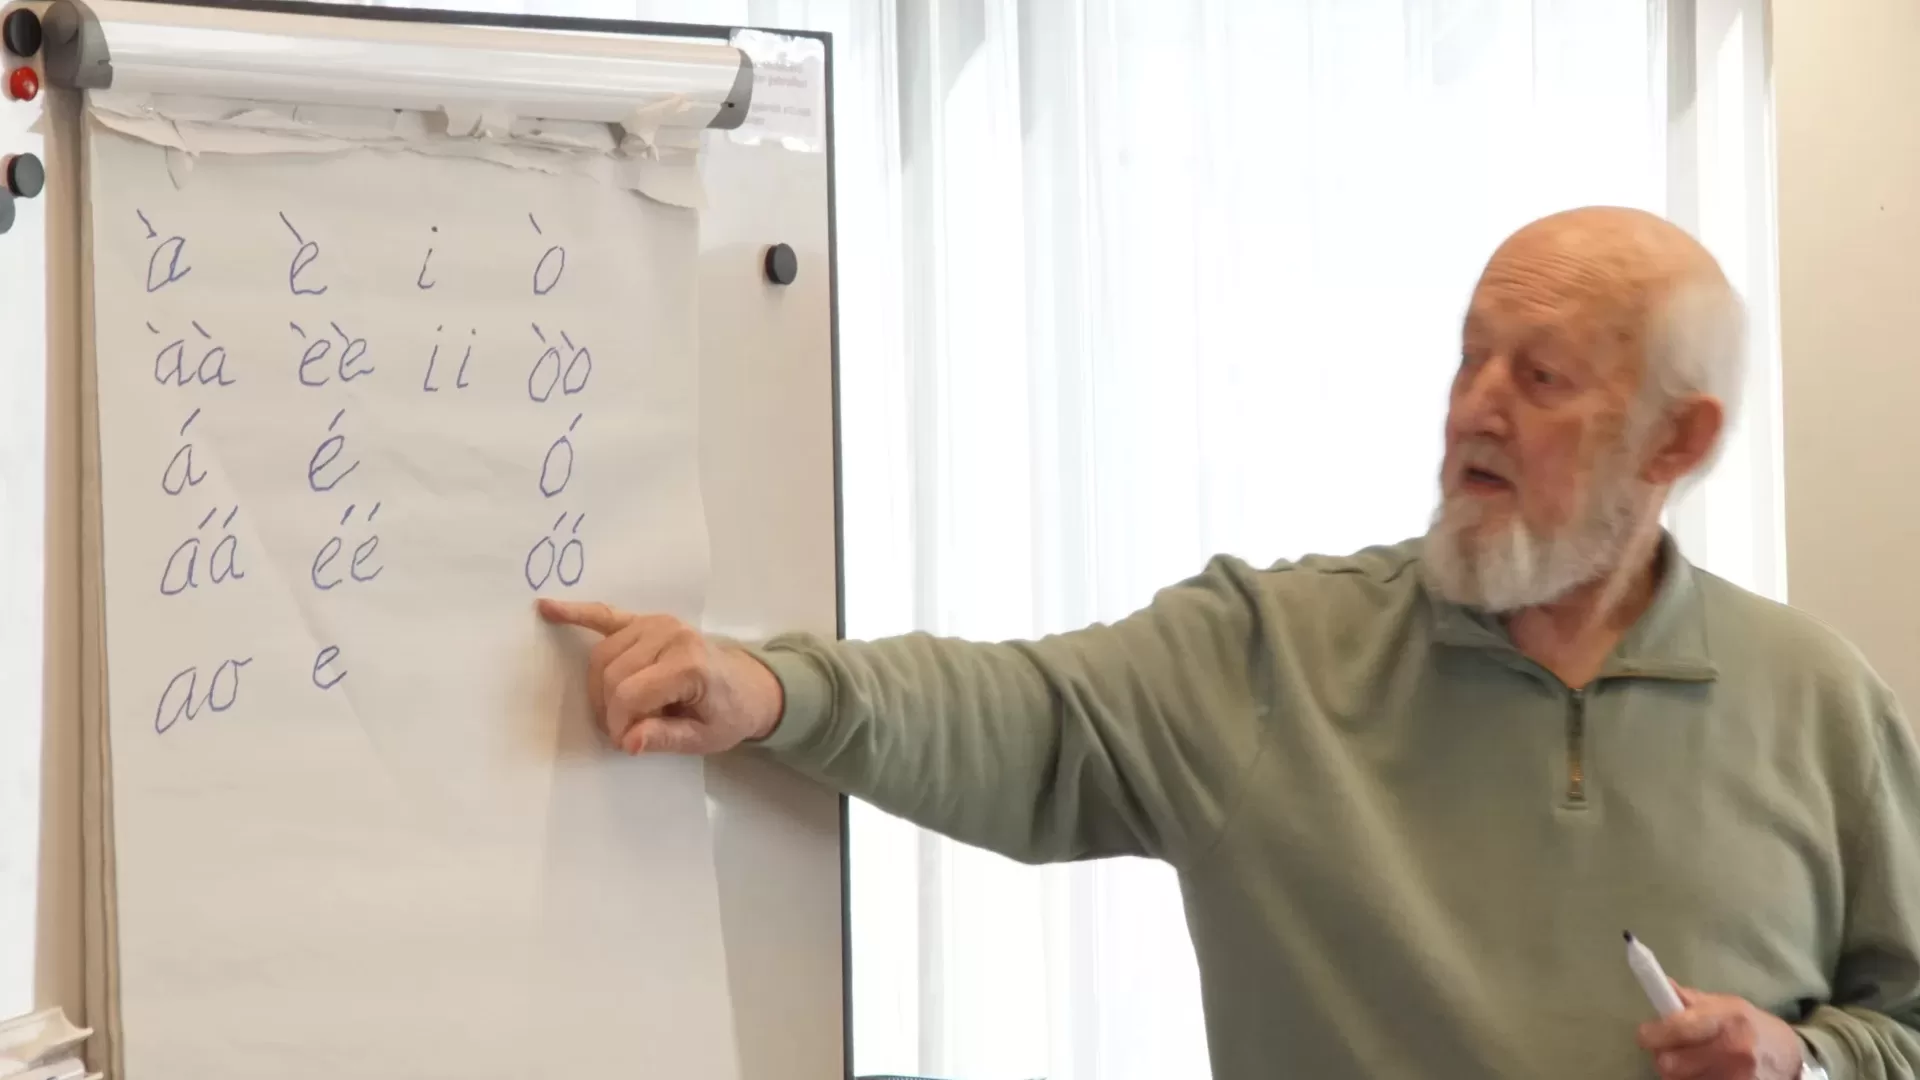 à è i ò
àà èè ii òò
á é ó
áá éé óó
ao e